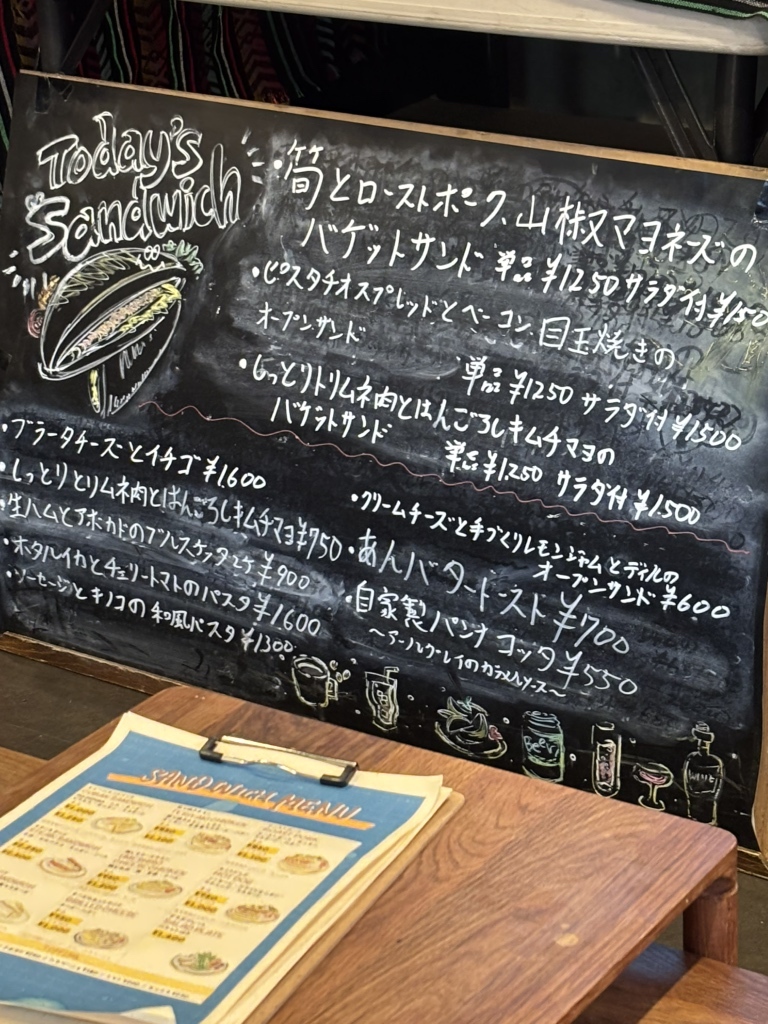 Today's
Sandwich
・筍とローストポーク、山椒マヨネーズの
バゲットサンド 単品 ¥1250 サラダ付 ¥1500
・ピスタチオスプレッドとベーコン、目玉焼きの
オープンサンド
単品 ¥1250 サラダ付 ¥1500
・しっとりトリムネ肉とはんごろしキムチマヨの
バゲットサンド 単品 ¥1250 サラダ付 ¥1500
・ブラータチーズとイチゴ ¥1600
・しっとりとりムネ肉とはんごろしキムチマヨ ¥750
・生ハムとアボカドのブルスケッタ2ケ ¥900
・ホタルイカとチェリートマトのパスタ ¥1600
・ソーセージとキノコの和風パスタ ¥1300
・クリームチーズと手づくりレモンジャムとディルの
オープンサンド ¥600
・あんバタートースト ¥700
・自家製パンナコッタ ¥550
～アールグレイのカラメルソース～
Beer
WINE
SANDWICH MENU